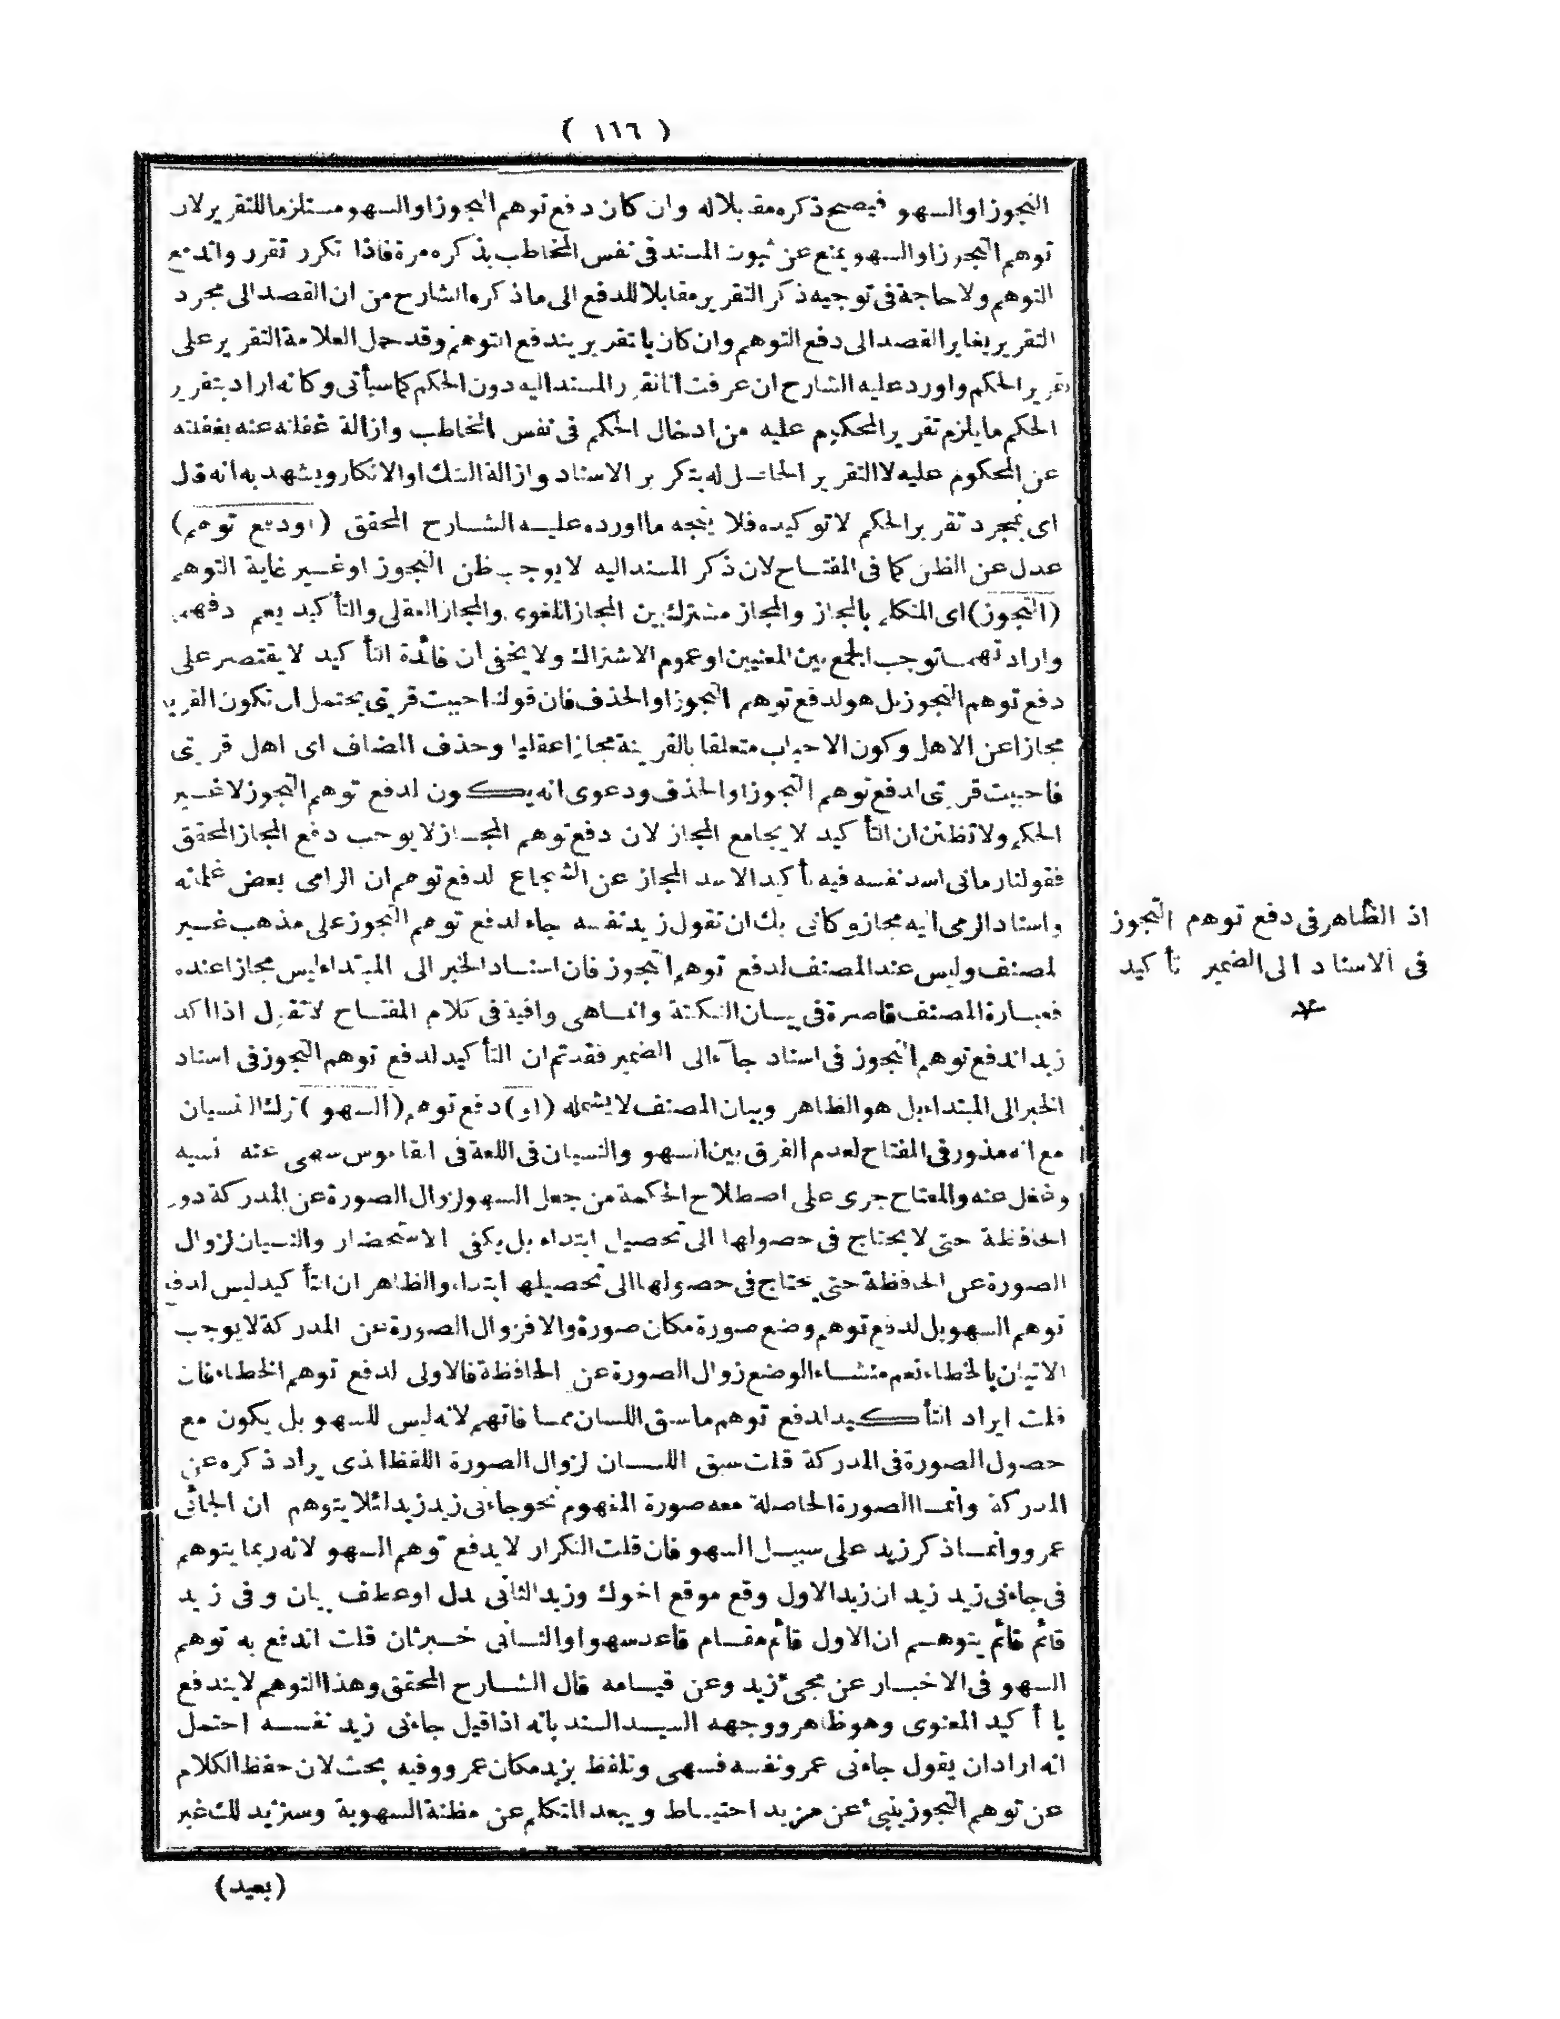 ( ١١٦ )
التجوز او السهو فيصح ذكره مقابلا له وان كان دفع توهم التجوز او السهو مستلزما للتقرير لان
توهم التجوز او السهو يمنع عن ثبوت المسند فى نفس المخاطب بذكره مرة فاذا تكرر تقرر واندفع
التوهم ولا حاجة فى توجيه ذكر التقرير مقابلا للدفع الى ما ذكره الشارح من ان القصد الى مجرد
التقرير يغاير القصد الى دفع التوهم وان كان بالتقرير يندفع التوهم وقد حمل العلامة التقرير على
تقرير الحكم واورد عليه الشارح ان عرفت انا نقرر المسند اليه دون الحكم كما سيأتى وكانه اراد بتقرير
الحكم ما يلزم تقرير المحكوم عليه من ادخال الحكم فى نفس المخاطب وازالة غفلته عنه بغفلته
عن المحكوم عليه لا التقرير الحاصل له بتكرير الاسناد وازالة الشك او الانكار ويشهد به انه قال
اى بمجرد تقرير الحكم لا توكيده فلا يتجه ما اورده عليه الشارح المحقق (اودفع توهم)
عدل عن الظن كما فى المفتاح لان ذكر المسند اليه لا يوجب ظن التجوز او غير غاية التوهم
(التجوز) اى التكلم بالمجاز والمجاز مشترك بين المجاز اللغوى والمجاز العقلى والتأكيد يعم دفعهما
وارادتهما توجب الجمع بين المعنيين او عموم الاشتراك ولا يخفى ان فائدة التأكيد لا يقتصر على
دفع توهم التجوز بل هو لدفع توهم التجوز او الحذف فان قولنا احببت قريتى يحتمل ان تكون القرية
مجازا عن الاهل وكون الاحباب متعلقا بالقرينة مجازا عقليا وحذف المضاف اى اهل قريتى
فاحببت قريتى لدفع توهم التجوز او الحذف ودعوى انه يكون لدفع توهم التجوز لا غير
الحكم ولا تظنن ان التأكيد لا يجامع المجاز لان دفع توهم المجاز لا يوجب دفع المجاز المحقق
فقولنا رمانى اسد نفسه فيه تأكيد الاسد المجاز عن الشجاع لدفع توهم ان الرامى بعض غلمانه
واسناد الرمى اليه مجاز وكانى بك ان تقول زيد نفسه جاء لدفع توهم التجوز على مذهب غير
المصنف وليس عند المصنف لدفع توهم التجوز فان اسناد الخبر الى المبتداء ليس مجازا عنده
فعبارة المصنف قاصرة فى بيان النكتة وانما هى وافية فى كلام المفتاح لا تقول اذا اكد
زيد اندفع توهم التجوز فى اسناد جآء الى الضمير فقد تم ان التأكيد لدفع توهم التجوز فى اسناد
الخبر الى المبتداء بل هو الظاهر وبيان المصنف لا يشمله (او) دفع توهم (السهو) ترك النسيان
مع انه مذور فى المفتاح لعدم الفرق بين السهو والنسيان فى اللغة فى القاموس سهى عنه نسيه
وغفل عنه والمفتاح جرى على اصطلاح الحكمة من جعل السهو لزوال الصورة عن المدركة دون
الحافظة حتى لا يحتاج فى حصولها الى تحصيل ابتداء بل يكفى الاستحضار والنسيان لزوال
الصورة عن الحافظة حتى يحتاج فى حصولها الى تحصيلها ابتداء والظاهر ان التأكيد ليس لدفع
توهم السهو بل لدفع توهم وضع صورة مكان صورة والا فزوال الصورة عن المدركة لا يوجب
الاتيان بالخطاء نعم منشاء الوضع زوال الصورة عن الحافظة فالاولى لدفع توهم الخطاء فان
قلت ايراد التأكيد لدفع توهم ما سبق اللسان مما فاتهم لانه ليس للسهو بل يكون مع
حصول الصورة فى المدركة قلت سبق اللسان لزوال الصورة اللفظ الذى يراد ذكره عن
المدركة وانما الصورة الحاصلة معه صورة المفهوم نحو جاءنى زيد زيد لئلا يتوهم ان الجائى
عمرو وانما ذكر زيد على سبيل السهو فان قلت التكرار لا يدفع توهم السهو لانه ربما يتوهم
فى جاءنى زيد زيد ان زيد الاول وقع موقع اخوك وزيد الثانى بدل او عطف بيان وفى زيد
قائم قائم يتوهم ان الاول قائم مقام قاعد سهوا او الثانى خبر ثان قلت اندفع به توهم
السهو فى الاخبار عن مجئ زيد وعن قيامه قال الشارح المحقق وهذا التوهم لا يندفع
بالتأكيد المعنوى وهو ظاهر ووجهه السيد السند بانه اذا قيل جاءنى زيد نفسه احتمل
انه اراد ان يقول جاءنى عمرو نفسه فسهى وتلفظ بزيد مكان عمرو وفيه بحث لان حفظ الكلام
عن توهم التجوز ينبئ عن مزيد احتياط ويبعد المتكلم عن مظنة السهوية وسنزيد لك غير
(بعيد)
اذ الظاهر فى دفع توهم التجوز
فى الاسناد الى الضمير تأكيد
عد